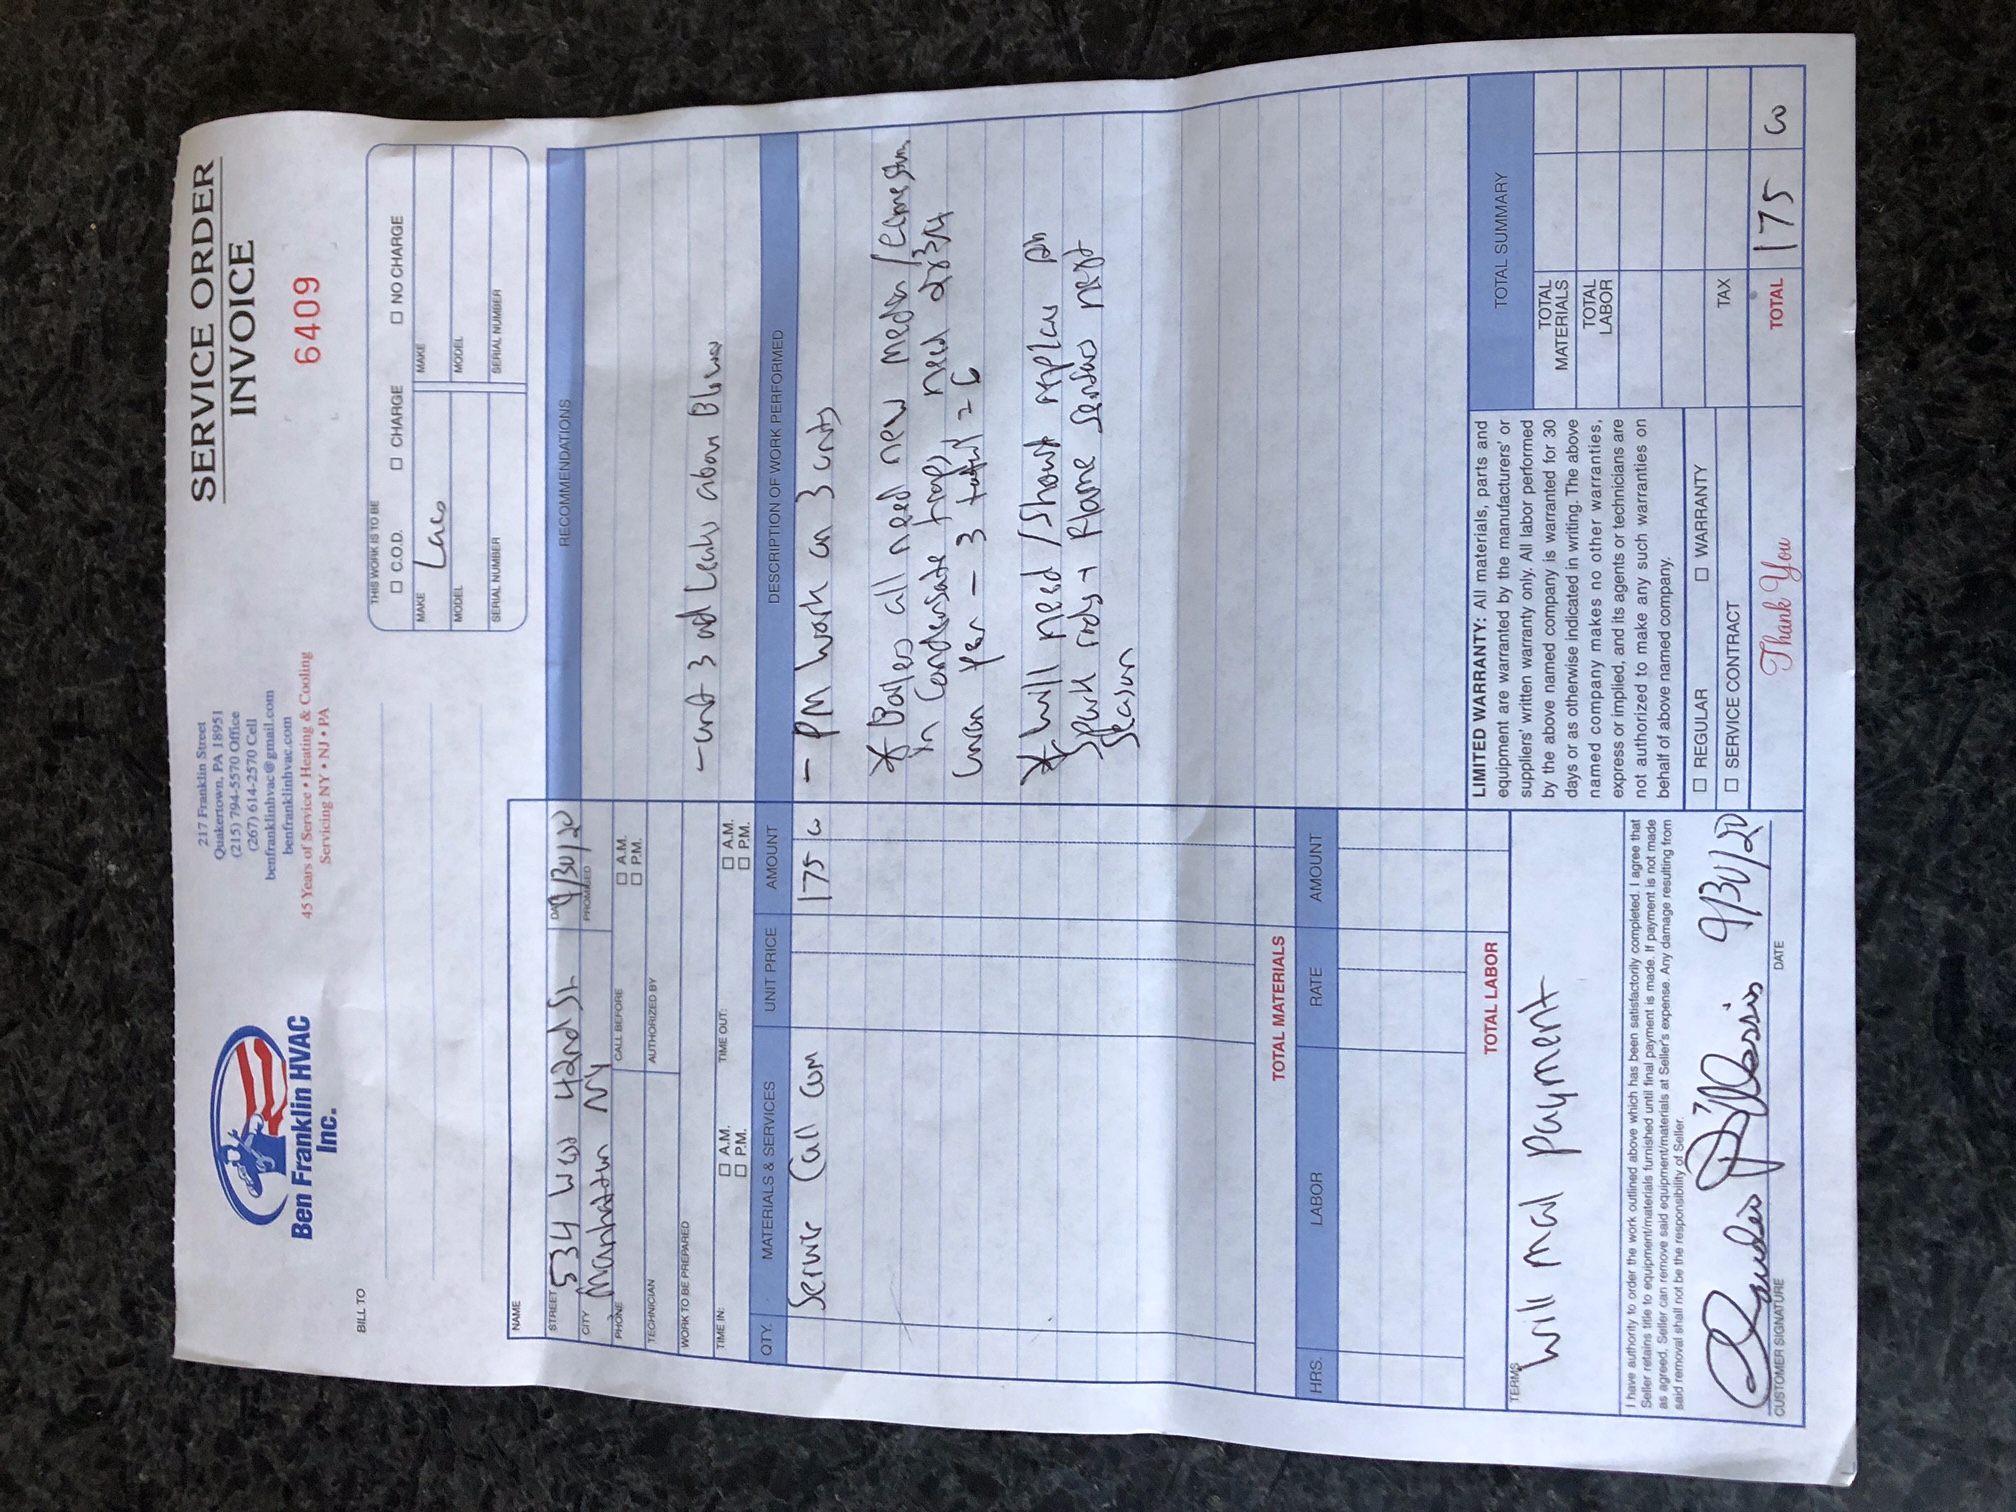 Ben Franklin HVAC
Inc.
217 Franklin Street
Quakertown, PA 18951
(215) 794-5570 Office
(267) 614-2570 Cell
benfranklinhvac@gmail.com
benfranklinhvac.com
45 Years of Service • Heating & Cooling
Servicing NY • NJ • PA
SERVICE ORDER
INVOICE
6409
BILL TO
THIS WORK IS TO BE
☐ C.O.D. ☐ CHARGE ☐ NO CHARGE
MAKE MAKE
MODEL MODEL
SERIAL NUMBER SERIAL NUMBER
NAME
STREET 534 West 42nd St. DATE 9/30/20
CITY Manhattan NY PROMISED
PHONE CALL BEFORE ☐ A.M. ☐ P.M.
TECHNICIAN AUTHORIZED BY
WORK TO BE PREPARED
TIME IN: ☐ A.M. ☐ P.M. TIME OUT: ☐ A.M. ☐ P.M.
RECOMMENDATIONS
- unt 3 Leaks above Blower
QTY. MATERIALS & SERVICES UNIT PRICE AMOUNT
Service Call 175
TOTAL MATERIALS
HRS. LABOR RATE AMOUNT
TOTAL LABOR
DESCRIPTION OF WORK PERFORMED
- PM work on 3 units
* all need new media
in Condensate traps need
year - 3 total = 6
* will need / Should replace
Spark rods + Flame Sensors next
Season
TERMS
will mail payment
I have authority to order the work outlined above which has been satisfactorily completed. I agree that
Seller retains title to equipment/materials furnished until final payment is made. If payment is not made
as agreed, Seller can remove said equipment/materials at Seller's expense. Any damage resulting from
said removal shall not be the responsibility of Seller.
9/30/20
CUSTOMER SIGNATURE DATE
LIMITED WARRANTY: All materials, parts and
equipment are warranted by the manufacturers' or
suppliers' written warranty only. All labor performed
by the above named company is warranted for 30
days or as otherwise indicated in writing. The above
named company makes no other warranties,
express or implied, and its agents or technicians are
not authorized to make any such warranties on
behalf of above named company.
☐ REGULAR ☐ WARRANTY
☐ SERVICE CONTRACT
Thank You
TOTAL SUMMARY
TOTAL
MATERIALS
TOTAL
LABOR
TAX
TOTAL 175